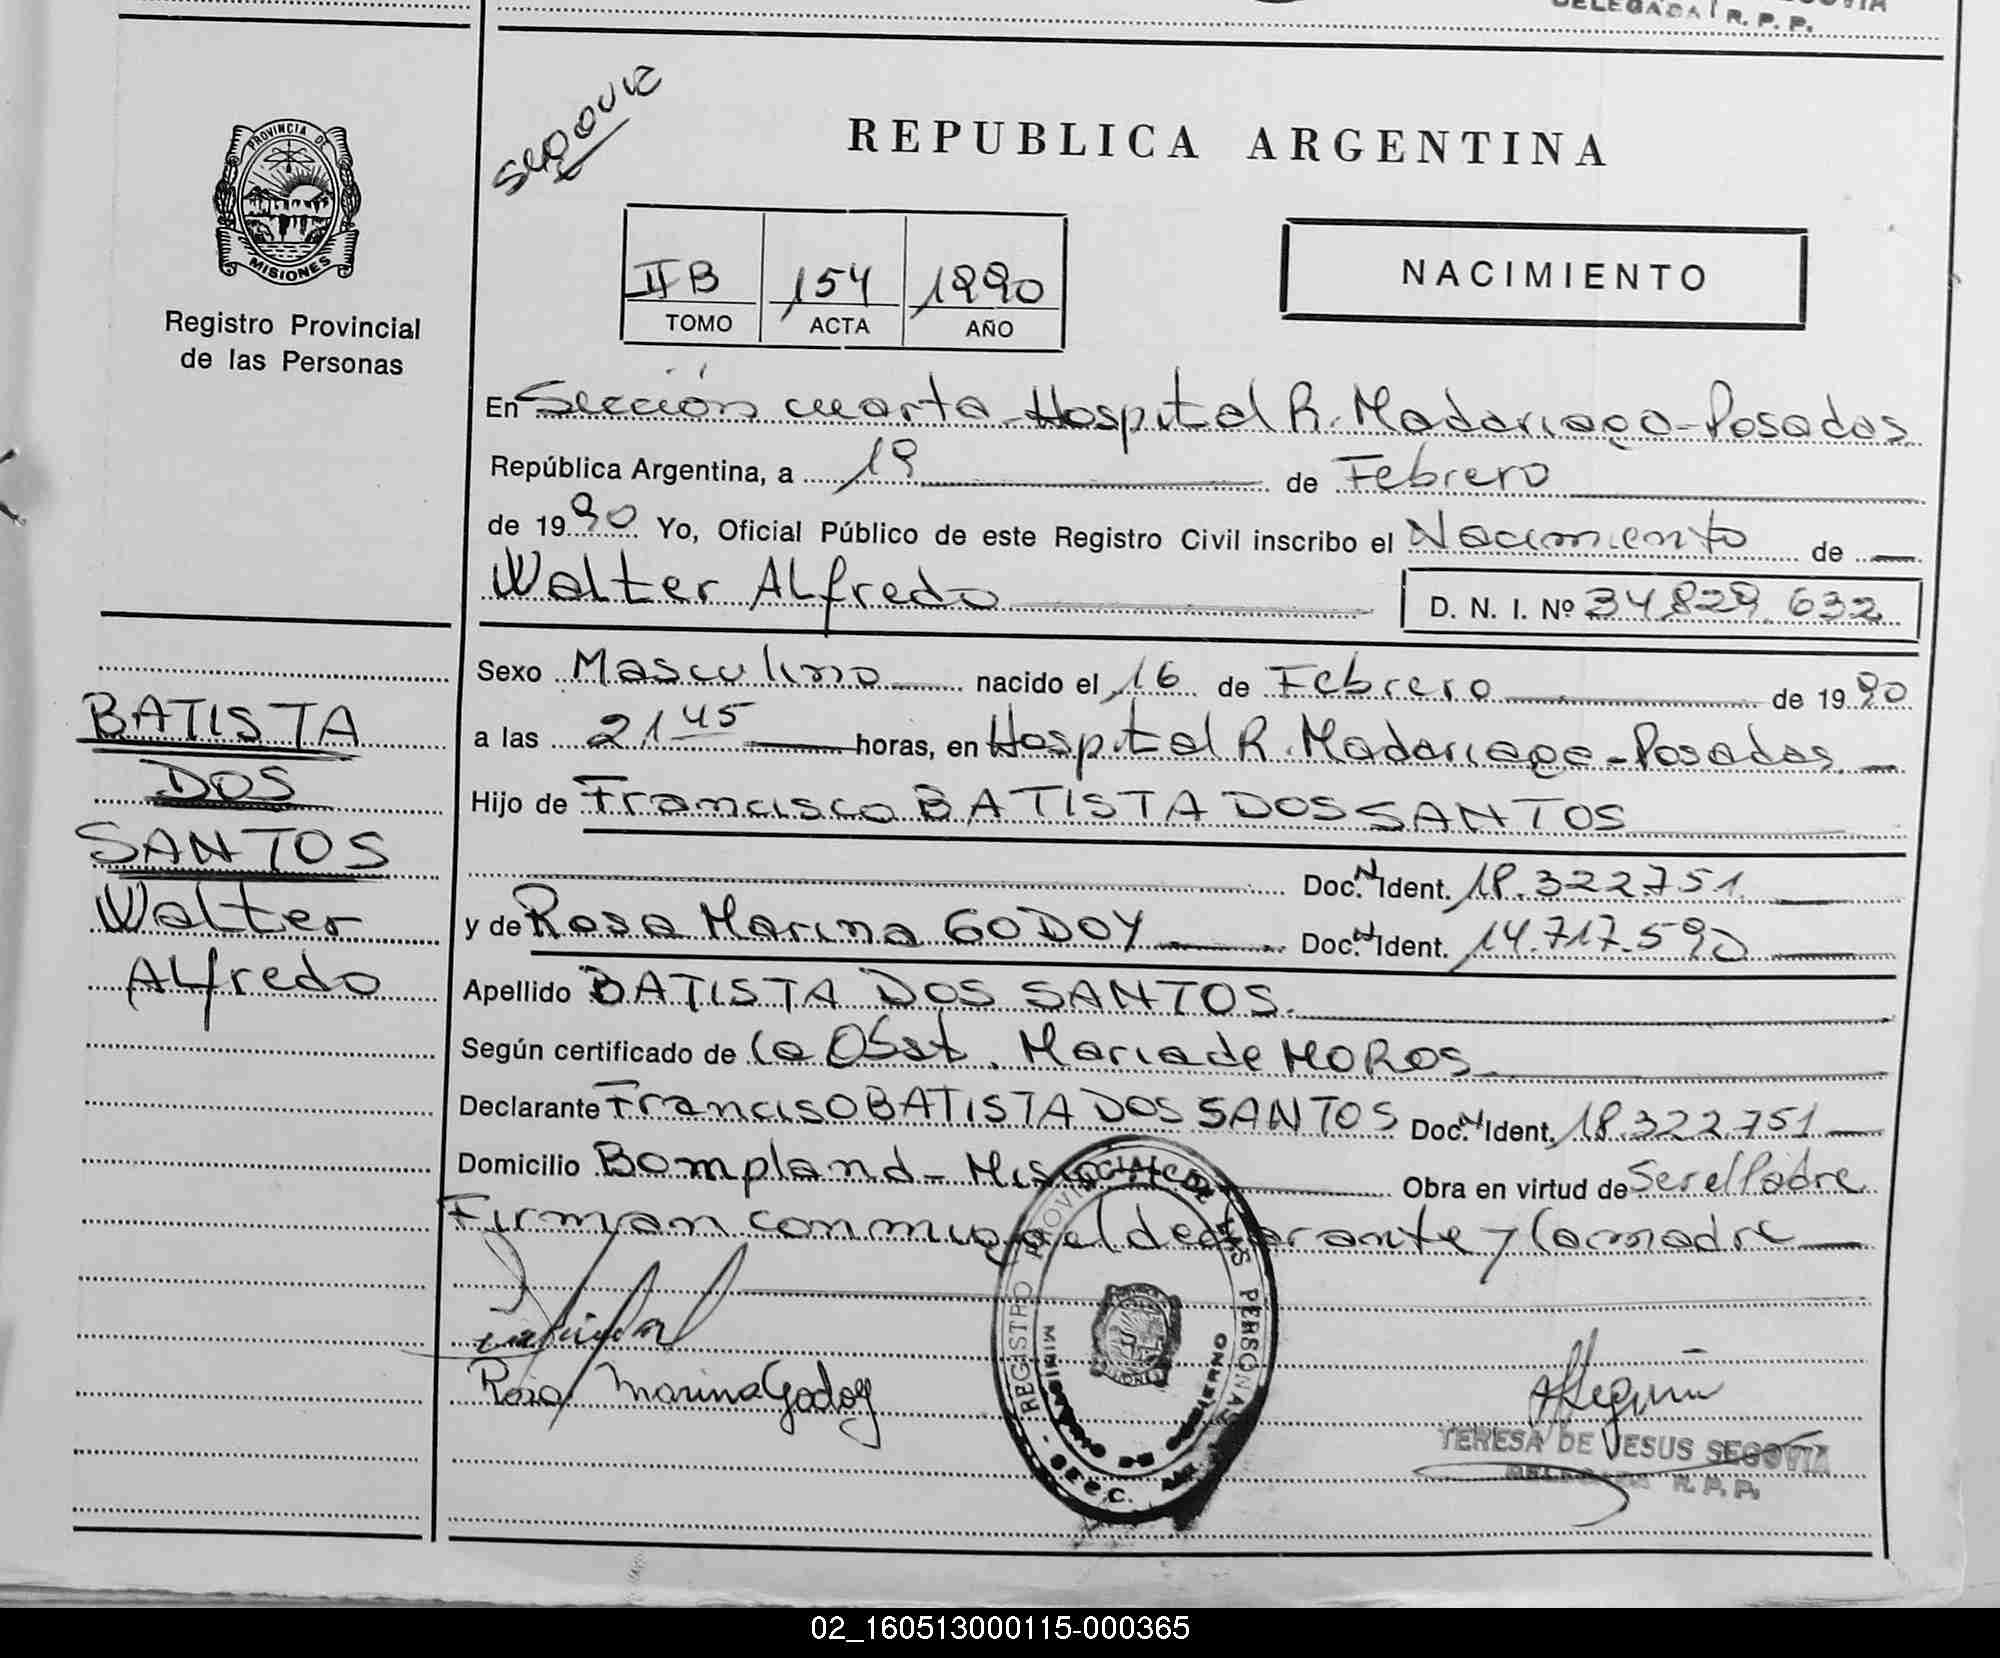 DELEGADA R. P. P.
Segovia
PROVINCIA DE
MISIONES
Registro Provincial
de las Personas
REPUBLICA ARGENTINA
IIB 154 1990
TOMO ACTA AÑO
NACIMIENTO
En Sección cuarta - Hospital R. Madariaga - Posadas
República Argentina, a 19 de Febrero
de 1990 Yo, Oficial Público de este Registro Civil inscribo el Nacimiento de
Walter Alfredo D. N. I. Nº 34829632
BATISTA
DOS
SANTOS
Walter
Alfredo
Sexo Masculino nacido el 16 de Febrero de 1990
a las 21 45 horas, en Hospital R. Madariaga - Posadas
Hijo de Francisco BATISTA DOS SANTOS
Doc. N Ident. 18.322.751
y de Rosa Marina GODOY Doc. N Ident. 14.717.590
Apellido BATISTA DOS SANTOS.
Según certificado de la Obst. Maria de MOROS
Declarante Franciso BATISTA DOS SANTOS Doc. N Ident. 18.322.751
Domicilio Bompland - Mis Obra en virtud de Ser el Padre
Firman conmigo el declarante y la madre
Rosa Marina Godoy
REGISTRO PROVINCIAL DE LAS PERSONAS
GOBIERNO
TERESA DE JESUS SEGOVIA
DELEGADA R. P. P.
02_160513000115-000365